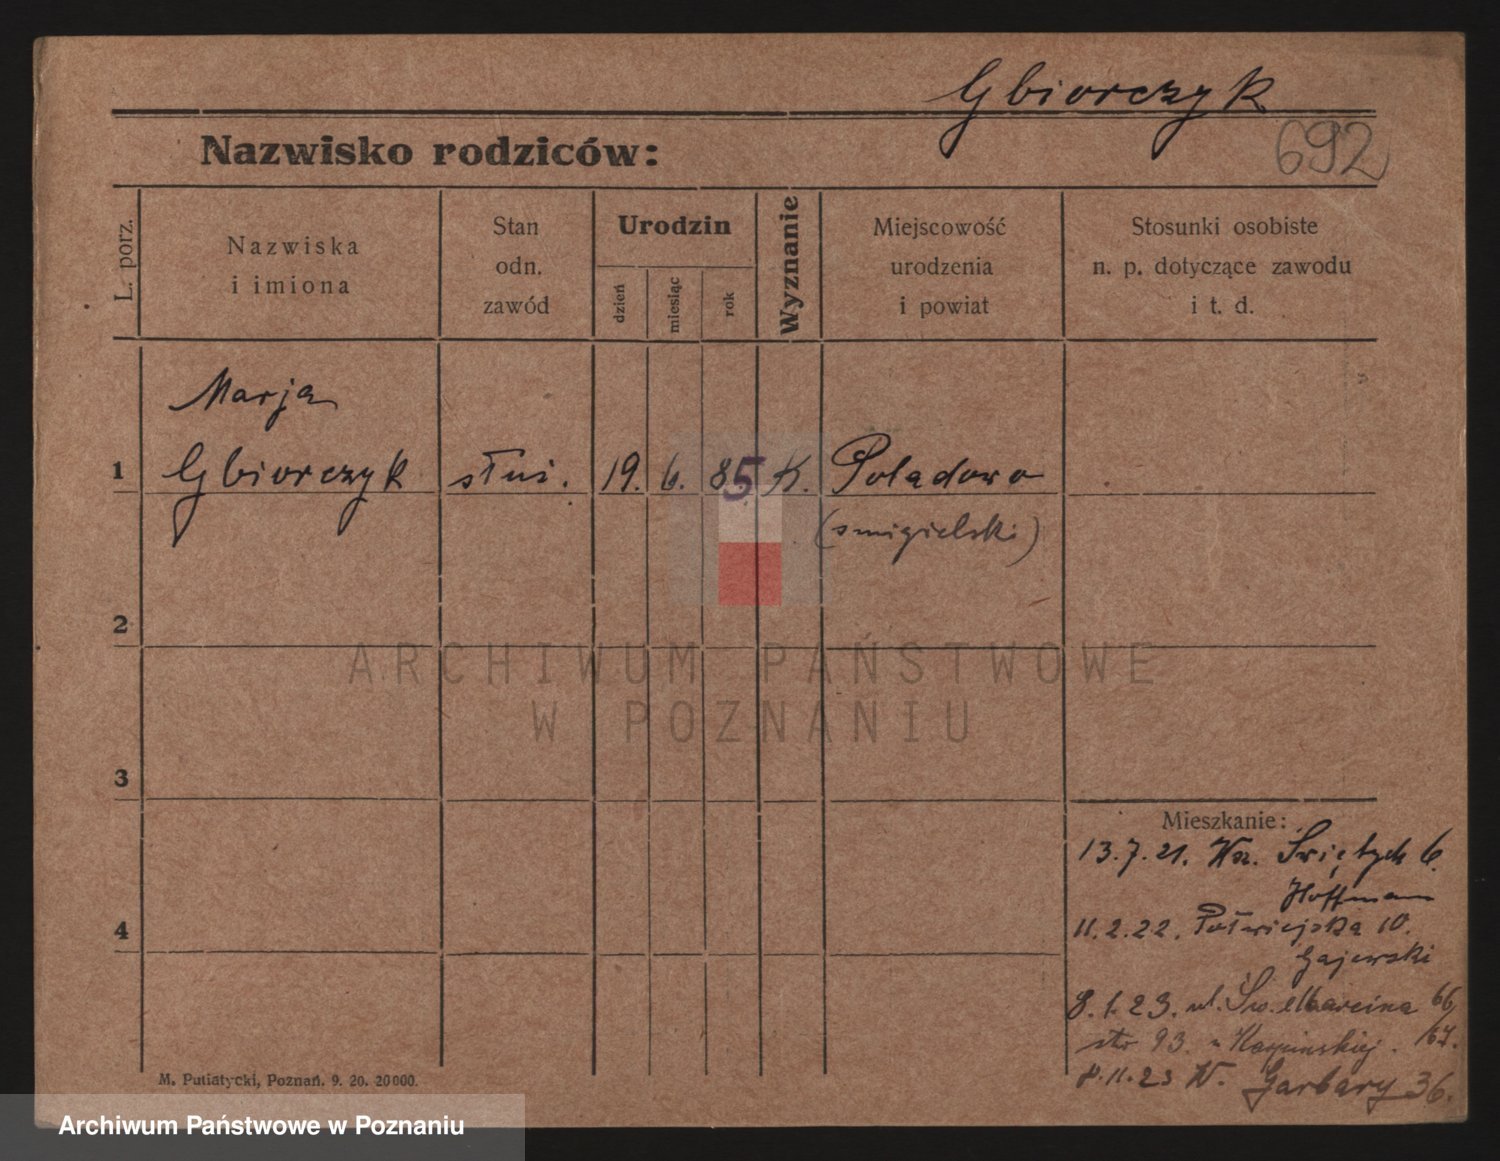 Gbiorczyk
692
Nazwisko rodziców:
L. porz.
Nazwiska
i imiona
Stan
odn.
zawód
Urodzin
dzień
miesiąc
rok
Wyznanie
Miejscowość
urodzenia
i powiat
Stosunki osobiste
n. p. dotyczące zawodu
i t. d.
Marja
1 Gbiorczyk służ. 19. 6. 85 K. Poladowo
(smigielski)
2
ARCHIWUM PAŃSTWOWE
W POZNANIU
3
Mieszkanie:
13.7.21. Wsz. Świętych 6.
Hoffmann
4
11.2.22. Półwiejska 10.
Gajewski
8.1.23. ul. Św. Marcina 66/67.
str 93. u Karpinskiej.
8.11.23 W. Garbary 36.
M. Putiatycki, Poznań. 9. 20. 20000.
Archiwum Państwowe w Poznaniu